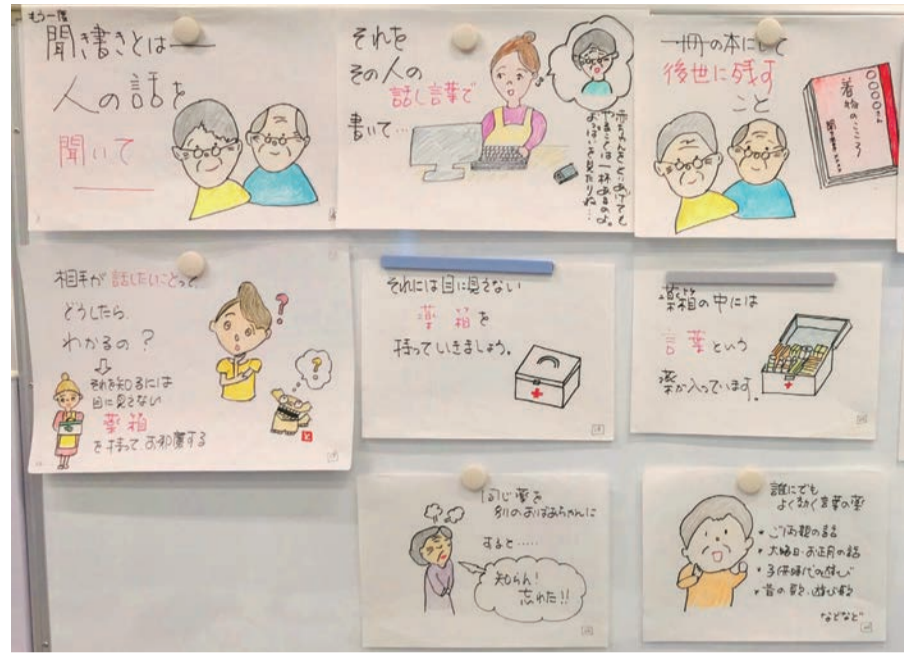 もう一度
聞き書きとは
人の話を
聞いて
それを
その人の
話し言葉で
書いて…
赤ちゃんをとりあげても
やることは一杯あるのよ。
おっぱいを見たりね…
一冊の本にして
後世に残す
こと
○○○○さん
着物のこころ
相手が話したいことって、
どうしたら、
わかるの？
⇩
それを知るには
目に見えない
薬箱
を持って、お邪魔する
それには目に見えない
薬箱を
持っていきましょう。
薬箱の中には
言葉という
薬が入っています。
同じ薬を
別のおばあちゃんに
すると……
知らん！
忘れた!!
誰にでも
よく効く言葉の薬
* ご両親の話
* 大晦日・お正月の話
* 子供時代の遊び
* 昔の歌・遊び歌
などなど